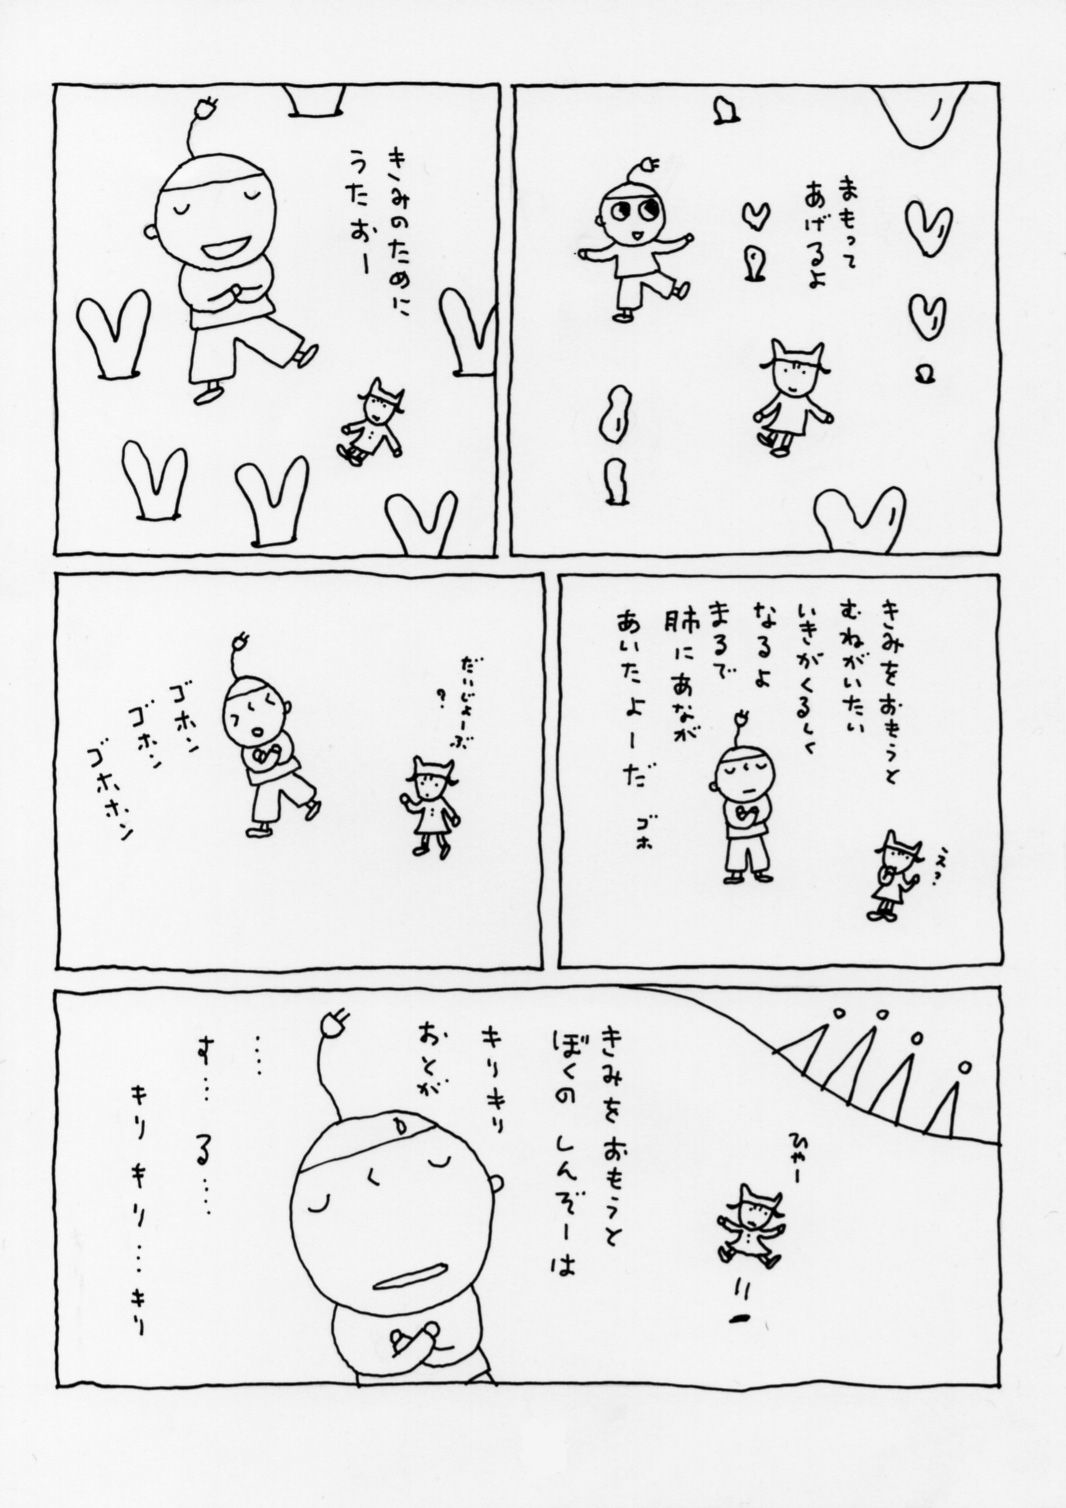 まもって
あげるよ
きみのために
うたおー
きみをおもうと
むねがいたい
いきがくるしく
なるよ
まるで
肺にあなが
あいたよーだ
ゴホ
え?
だいじょーぶ
?
ゴホン
ゴホン
ゴホホン
ひゃー
きみをおもうと
ぼくの しんぞーは
キリキリ
おとが
‥‥
す‥‥ る‥‥
キリ キリ‥‥キリ